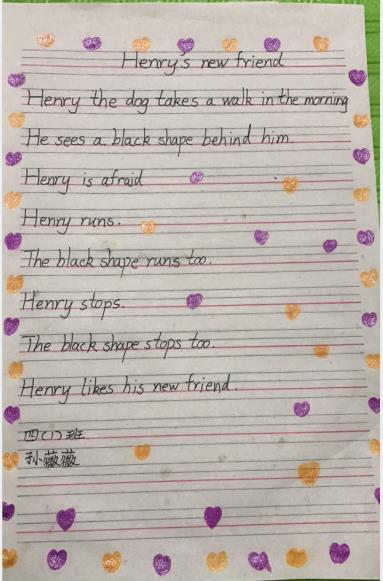 Henry's new friend
Henry the dog takes a walk in the morning
He sees a black shape behind him.
Henry is afraid
Henry runs.
The black shape runs too.
Henry stops.
The black shape stops too.
Henry likes his new friend.
四(1)班
孙薇薇